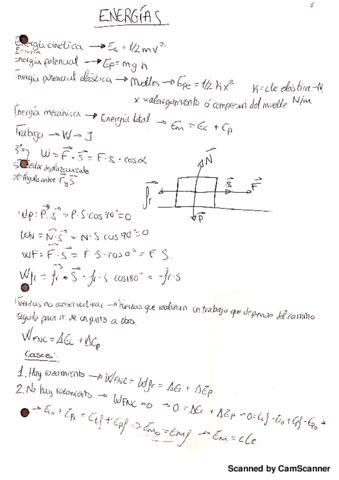 ENERGÍAS
Energía cinética → Ec = 1/2 m v²
Energía potencial → Ep = m g h
Energía potencial elástica → Muelles → Epe = 1/2 K x² K = cte elástica → N/m
x = alargamiento o compresión del muelle
Energía mecánica → Energía total → Em = Ec + Ep
Trabajo → W → J
W = F · s = F · s · cosα
s = vector desplazamiento
α = ángulo entre F y s
N
fr s F
P
Wp = P · s = P · s · cos 90° = 0
WN = N · s = N · s cos 90° = 0
WF = F · s = F · s · cos 0° = F s
Wfr = fr · s = fr · s cos 180° = -fr · s
Fuerzas no conservativas → Fuerzas que realizan un trabajo que depende del camino
seguido para ir de un punto a otro.
WFNC = ΔEc + ΔEp
Casos:
1. Hay rozamiento → WFNC = Wfr = ΔEc + ΔEp
2. No hay rozamiento → WFNC = 0 → 0 = ΔEc + ΔEp → 0 = Ecf - Eco + Epf - Epo →
→ Eco + Epo = Ecf + Epf → Emo = Emf → Em = cte
Scanned by CamScanner